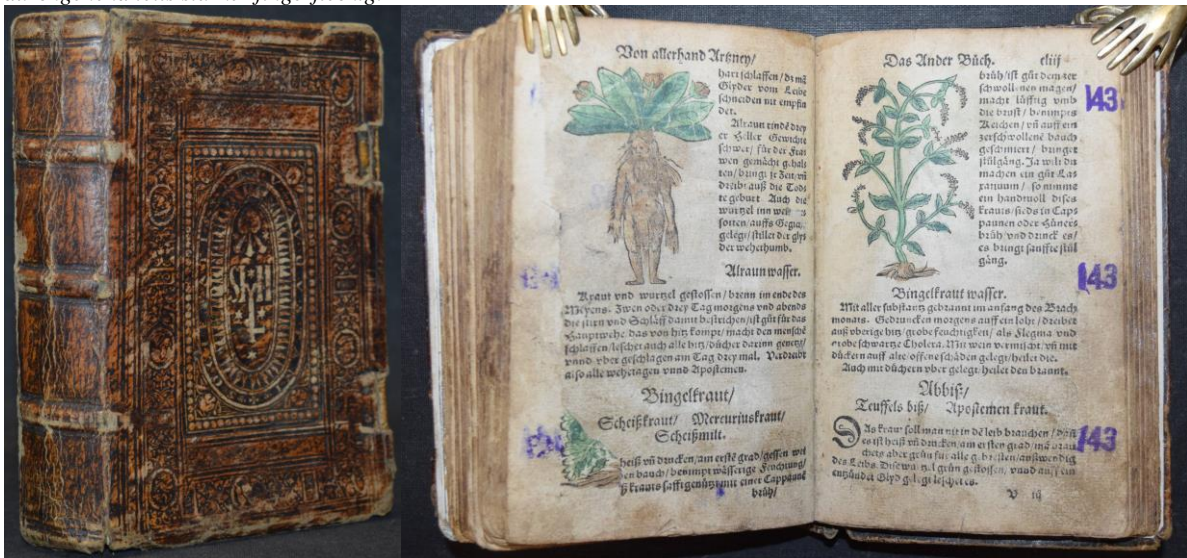 Von allerhand Artzney/
hart schlaffen / dz mā
Glyder vom Leibe
schneiden nit empfin
det.
Alraun rinde drey
er Heller Gewichte
schwer / für der Fraw
wen gemächt gehal
ten / bringt je Zeit / vñ
dreibt auß die Todt
te geburt Auch die
wurtzel inn wein
sotten / auffs Gegicht
gelegt / stillet
der wehethumb.
Alraun wasser.
Kraut vnd wurtzel gestossen / brenn im ende des
Meyens. Zwen oder drey Tag morgens vnd abends
die stirn vnd Schläff damit bestrichen / ist gůt für das
Hauptwehe das von hitz kompt / macht den mensche
schlaffen / lescher auch alle hitz / dücher darinn genetzt /
vnnd vber geschlagen am Tag drey mal. Verdreibt
also alle wehetagen vnnd Apostemen.
Bingelkraut /
Scheißkraut / Mercuriuskraut /
Scheißmilt.
heiß vñ drucken / am erstē grad / gessen
en bauch / benimpt wässerige Feochtung /
krauts safft genützt mit einer Cappaune
brüh /
Das Ander Bůch. cliij
brüh / ist gůt dem
schwollenen magen /
macht lüfftig vmb
die brust / benimpt
Keichen / vñ auff ein
zerschwollenē bauch
geschmiert / bringet
stůlgāng. Ja wilt du
machen ein gůt Lax
/ so nimme
ein handtuoll dises
krauts / sieds in Cap
paunen oder Hüners
brüh / vnd drinck es /
es bringt sanffte stůl
gāng.
Bingelkraut wasser.
Mit aller substantz gebrannt im anfang des Brach
monats. Gedruncken morgens auff ein loht / dreibet
auß vberige hitz / grobe feuchtigkeit / als Flegma vnd
grobe schwartze Cholera. Mit wein vermischt / vñ mit
dückern auff alte / offene schäden gelegt / heilet die.
Auch mit düchern vber gelegt heilet den brannt.
Abbiß /
Teuffels biß / Apostemen kraut.
Das kraut soll man nit in dē leib brauchen / dañ
es ist heiß vñ drucken / am ersten grad / mā brau
chets aber grün für alle gebresten / außwendig
des Leibs. Dise wurtzel grün gestossen, vnnd auff ein
entzündt Glyd gelegt leschet es.
V iij
143
143
143